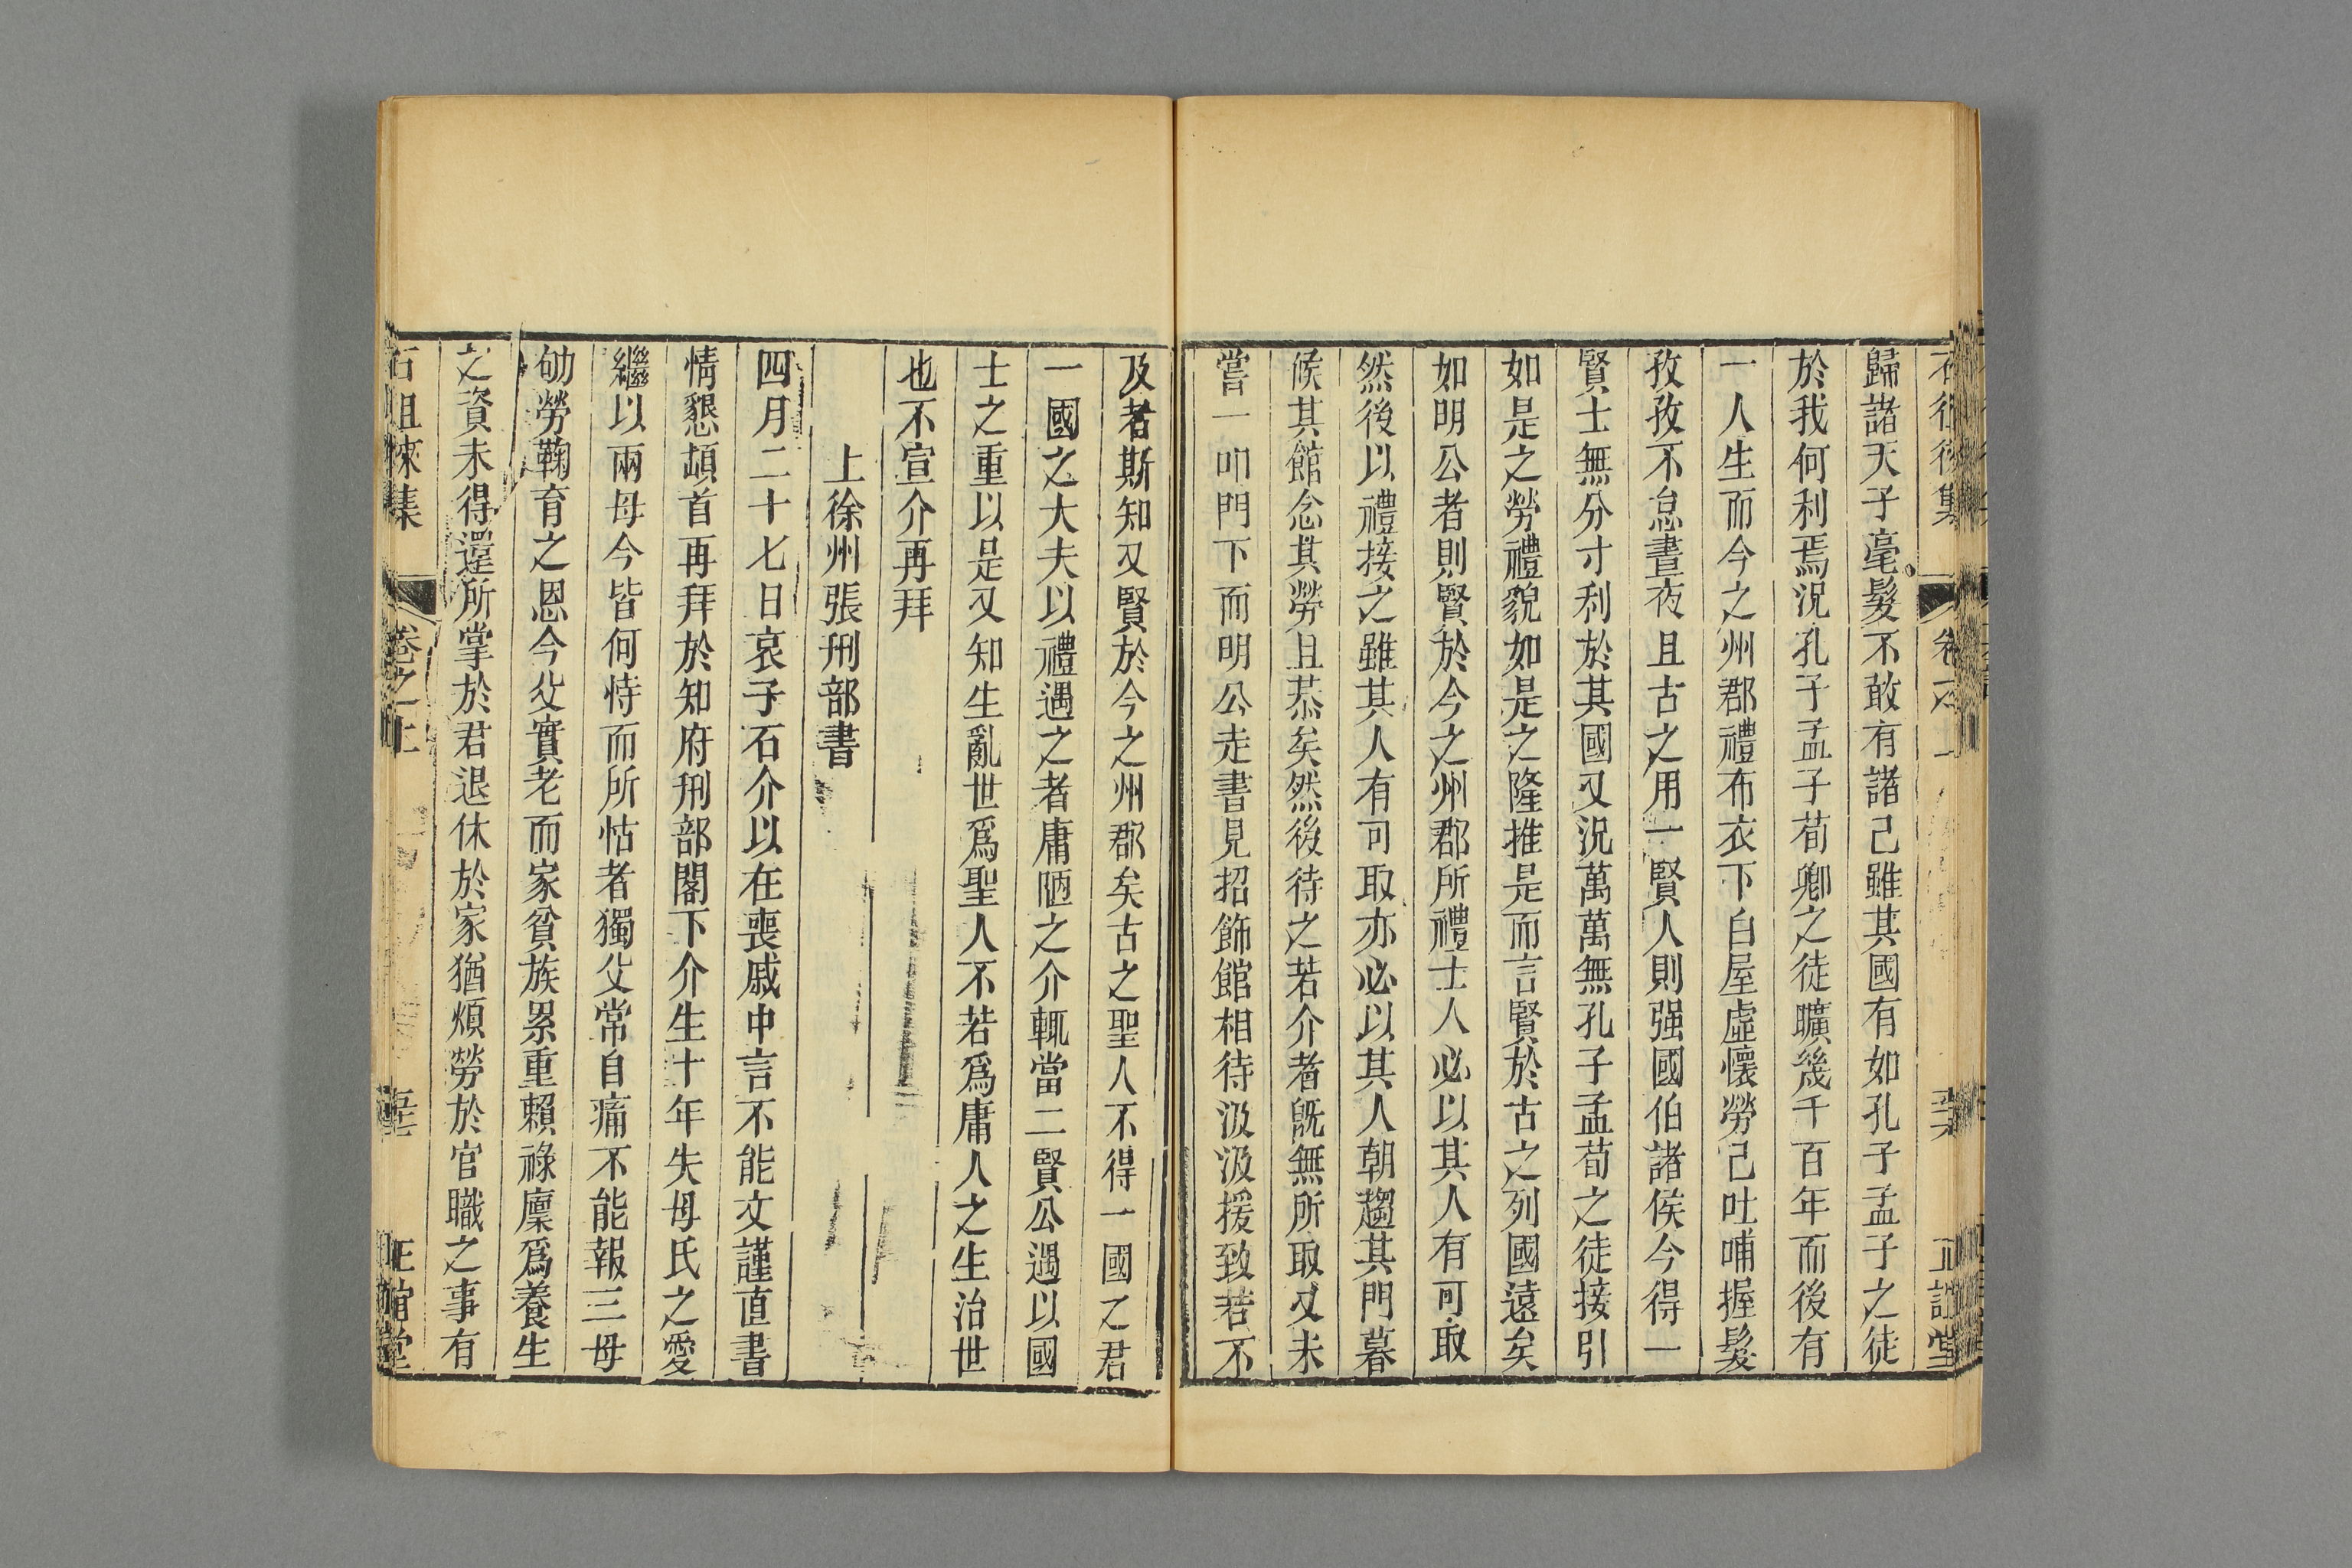 歸諸天子毫髮不敢有諸己雖其國有如孔子孟子之徒
於我何利焉況孔子孟子荀卿之徒曠幾千百年而後有
一人生而今之州郡禮布衣下白屋虛懷勞己吐哺握髮
孜孜不怠晝夜且古之用一賢人則强國伯諸侯今得一
賢士無分寸利於其國又況萬萬無孔子孟荀之徒接引
如是之勞禮貌如是之隆推是而言賢於古之列國遠矣
如明公者則賢於今之州郡所禮士人必以其人有可取
然後以禮接之雖其人有可取亦必以其人朝趨其門暮
候其館念其勞且恭矣然後待之若介者旣無所取又未
嘗一叩門下而明公走書見招飾館相待汲汲援致若不
及者斯知又賢於今之州郡矣古之聖人不得一國之君
一國之大夫以禮遇之者庸陋之介輒當二賢公遇以國
士之重以是又知生亂世爲聖人不若爲庸人之生治世
也不宣介再拜
上徐州張刑部書
四月二十七日哀子石介以在喪戚中言不能文謹直書
情懇頓首再拜於知府刑部閣下介生十年失母氏之愛
繼以兩母今皆何恃而所怙者獨父常自痛不能報三母
劬勞鞠育之恩今父實老而家貧族累重賴祿廩爲養生
之資未得還所掌於君退休於家猶煩勞於官職之事有
石徂徠集 卷之上 正誼堂